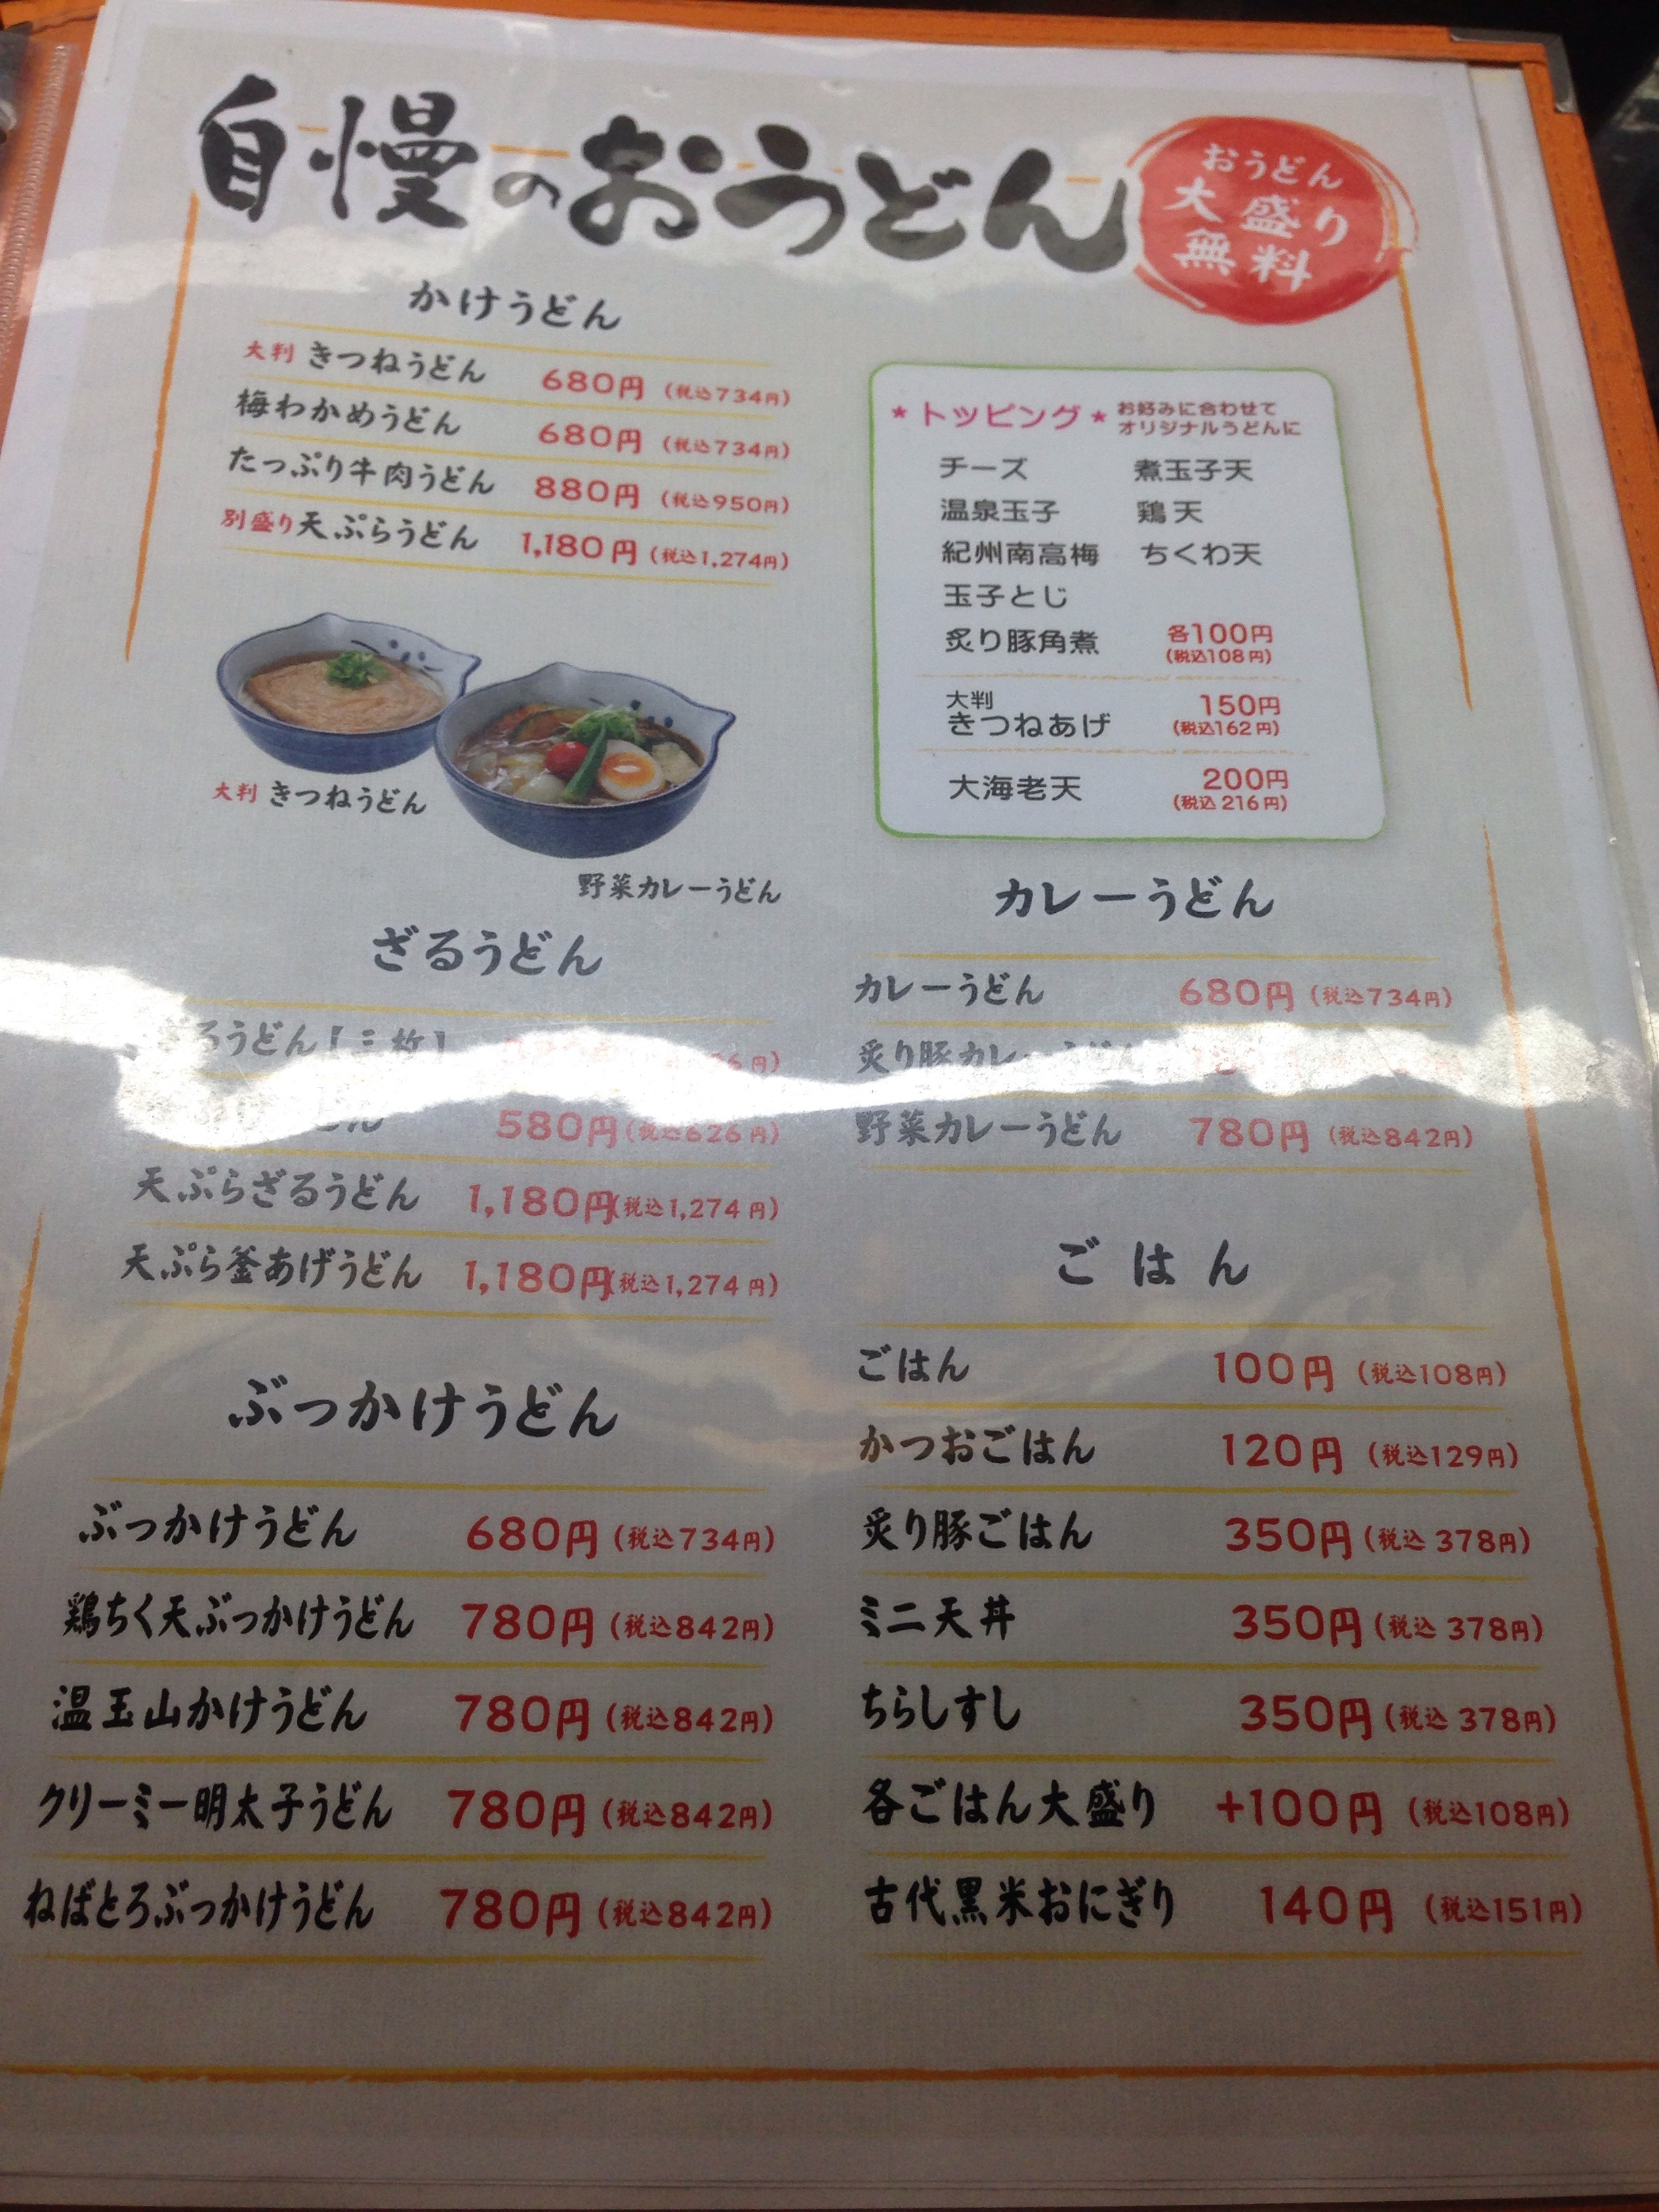 自慢のおうどん
おうどん
大盛り
無料
かけうどん
大判 きつねうどん 680円 (税込734円)
梅わかめうどん 680円 (税込734円)
たっぷり牛肉うどん 880円 (税込950円)
別盛り天ぷらうどん 1,180円 (税込1,274円)
大判 きつねうどん
野菜カレーうどん
★トッピング★ お好みに合わせて
オリジナルうどんに
チーズ 煮玉子天
温泉玉子 鶏天
紀州南高梅 ちくわ天
玉子とじ
炙り豚角煮 各100円
(税込108円)
大判
きつねあげ 150円
(税込162円)
大海老天 200円
(税込216円)
ざるうどん
うどん【三枚】
580円(税込626円)
天ぷらざるうどん 1,180円(税込1,274円)
天ぷら釜あげうどん 1,180円(税込1,274円)
ぶっかけうどん
ぶっかけうどん 680円(税込734円)
鶏ちく天ぶっかけうどん 780円(税込842円)
温玉山かけうどん 780円(税込842円)
クリーミー明太子うどん 780円(税込842円)
ねばとろぶっかけうどん 780円(税込842円)
カレーうどん
カレーうどん 680円(税込734円)
炙り豚カレーうどん
野菜カレーうどん 780円(税込842円)
ごはん
ごはん 100円(税込108円)
かつおごはん 120円(税込129円)
炙り豚ごはん 350円(税込378円)
ミニ天丼 350円(税込378円)
ちらしすし 350円(税込378円)
各ごはん大盛り +100円(税込108円)
古代黒米おにぎり 140円(税込151円)